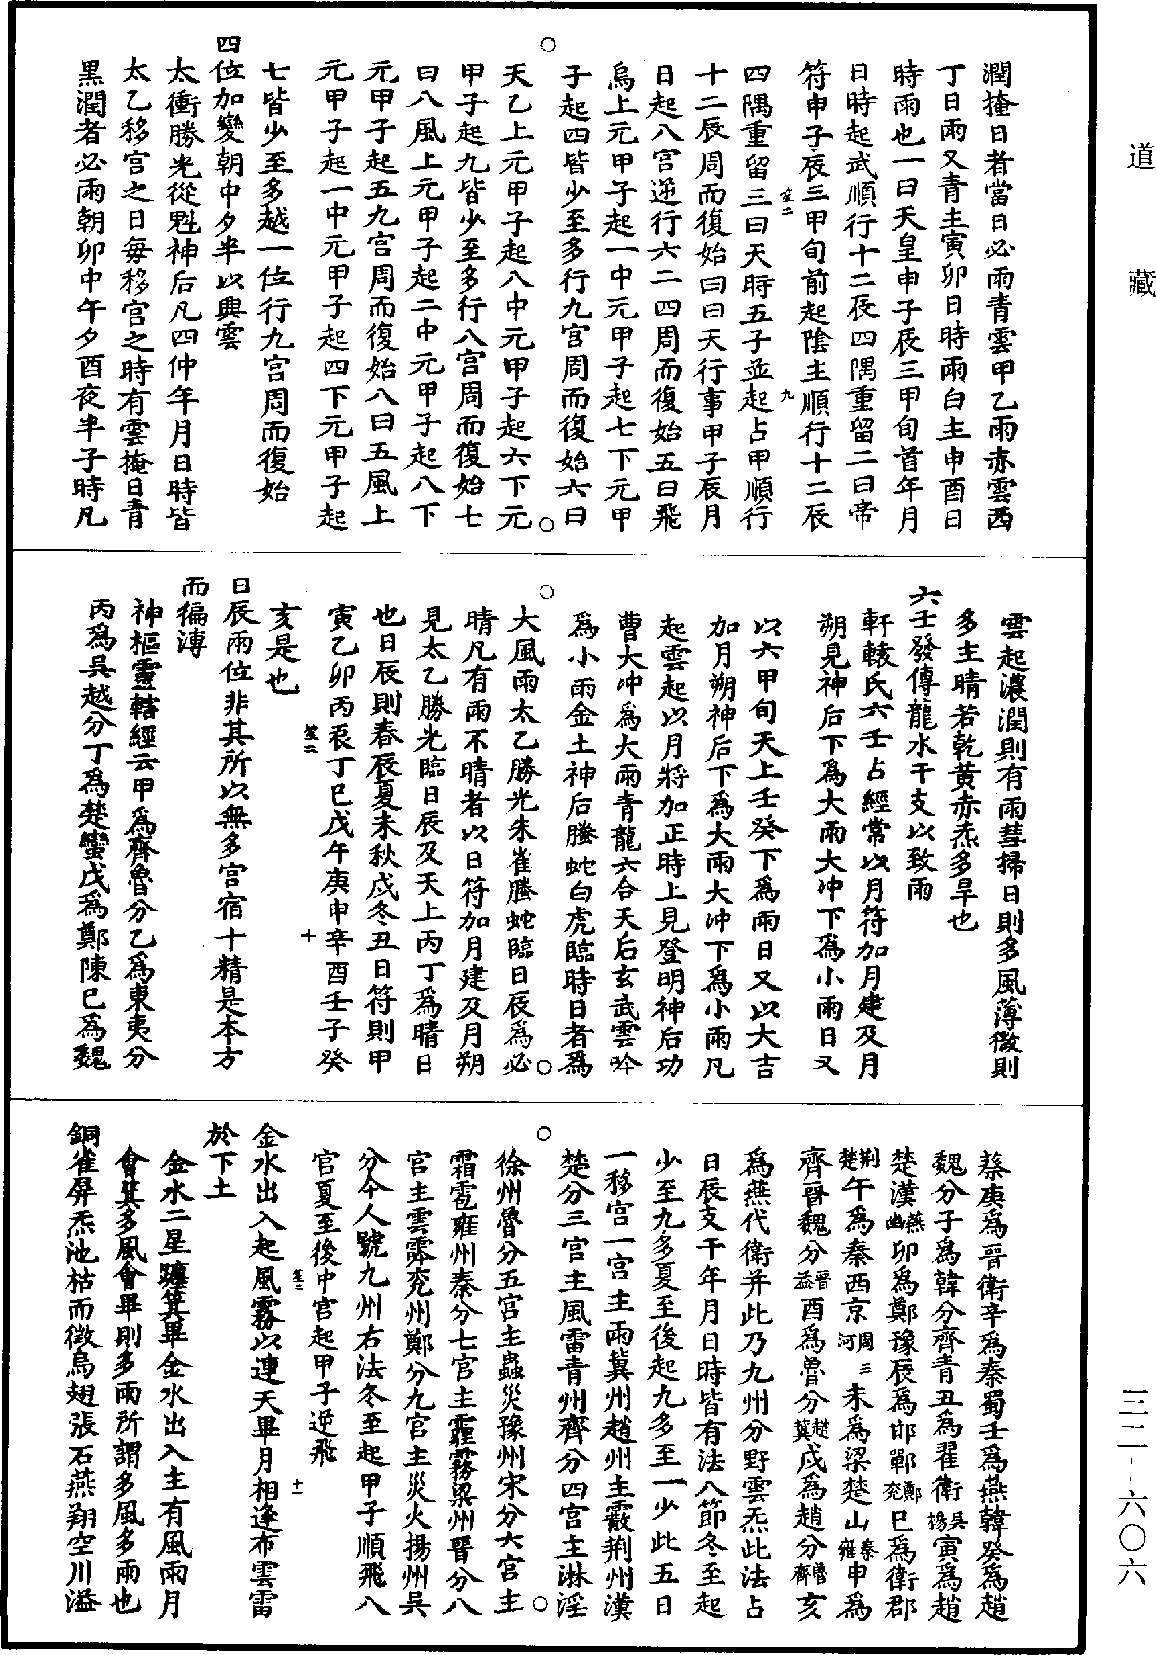 道藏
三二-六〇六
潤掩日者當日必雨青雲甲乙雨赤雲丙
丁日雨又青主寅卯日時雨白主申酉日
時雨也一曰天皇申子辰三甲旬首年月
日時起武順行十二辰四隅重留二曰帝
符申子辰三甲旬前起陰主順行十二辰
四隅重留三曰天時五子並起占甲順行
十二辰周而復始四曰天行事甲子辰月
日起八宮逆行六二四周而復始五曰飛
烏上元甲子起一中元甲子起七下元甲
子起四皆少至多行九宮周而復始六曰
天乙上元甲子起八中元甲子起六下元
甲子起九皆少至多行八宮周而復始七
曰八風上元甲子起二中元甲子起八下
元甲子起五九宮周而復始八曰五風上
元甲子起一中元甲子起四下元甲子起
七皆少至多越一位行九宮周而復始
四位加變朝中夕半以興雲
太衝勝光從魁神后凡四仲年月日時皆
太乙移宮之日每移宮之時有雲掩日青
黑潤者必雨朝卯中午夕酉夜半子時凡
雲起濃潤則有雨彗掃日則多風薄微則
多主晴若乾黃赤炁多旱也
六壬發傳龍水干支以致雨
軒轅氏六壬占經常以月符加月建及月
朔見神后下為大雨大冲下為小雨日又
以六甲旬天上壬癸下為雨日又以大吉
加月朔神后下為大雨大冲下為小雨凡
起雲起以月將加正時上見登明神后功
曹大冲為大雨青龍六合天后玄武雲吟
為小雨金土神后螣蛇白虎臨時日者為
大風雨太乙勝光朱雀螣蛇臨日辰為必
晴凡有雨不晴者以日符加月建及月朔
見太乙勝光臨日辰及天上丙丁為晴日
也日辰則春辰夏未秋戌冬丑日符則甲
寅乙卯丙辰丁巳戊午庚申辛酉壬子癸
亥是也
日辰兩位非其所以無多宮宿十精是本方
而徧溥
神樞靈轄經云甲為齊魯分乙為東夷分
丙為吳越分丁為楚蠻戊為鄭陳巳為魏
蔡庚為晉衛辛為秦蜀壬為燕韓癸為趙
魏分子為韓分齊青丑為翟衛吳揚寅為趙
楚漢燕幽卯為鄭豫辰為邯鄲鄭兖巳為衛郡
荆楚午為秦西京周三河未為梁楚山秦雍申為
齊晉魏分晉益酉為魯分趙冀戌為趙分魯齊亥
為燕代衛并此乃九州分野雲炁此法占
日辰支干年月日時皆有法八節冬至起
少至九多夏至後起九多至一少此五日
一移宮一宮主雨冀州趙州主霰荆州漢
楚分三宮主風雷青州齊分四宮主淋淫
徐州魯分五宮主蟲災豫州宋分六宮主
霜雹雍州秦分七宮主霾霧梁州晉分八
宮主雲霧兖州鄭分九宮主災火揚州吳
分今人號九州右法冬至起甲子順飛八
官夏至後中宮起甲子逆飛
金水出入起風霧以連天畢月相逢布雲雷
於下土
金水二星躔箕畢金水出入主有風雨月
會箕多風會畢則多雨所謂多風多雨也
銅雀屏炁池枯而徵烏翅張石燕翔空川溢